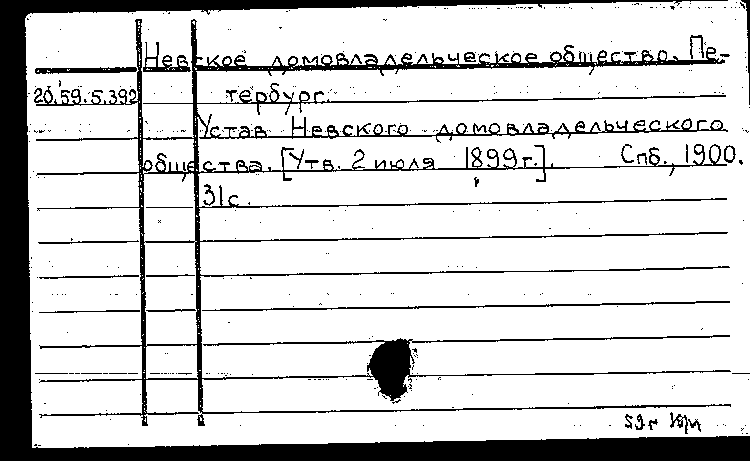 Невское домовладельческое общество. Пе-
20.59.5.392 тербург.
Устав Невского домовладельческого
общества. [Утв. 2 июля 1899г.]. Спб., 1900.
31с.
59г